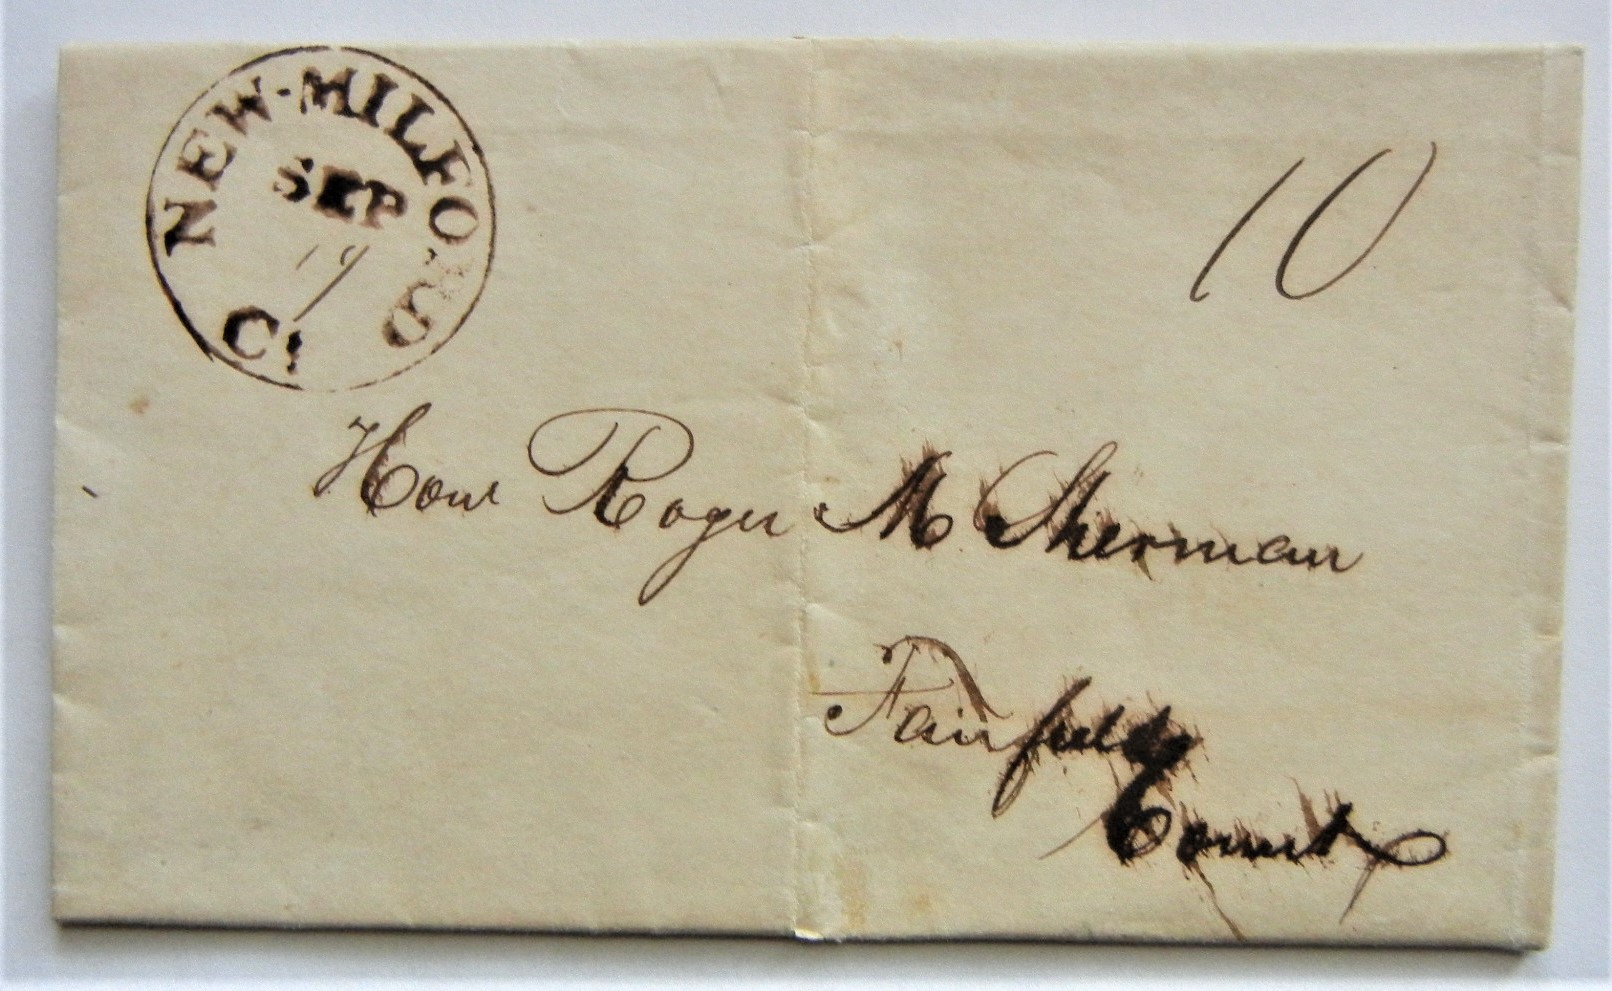 NEW-MILFORD
SEP
19
Ct
10
Honr Roger M Sherman
Fairfield
Connt